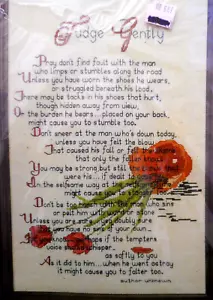 Judge Gently
Pray don't find fault with the man
who limps or stumbles along the road
Unless you have worn the shoes he wears,
or struggled beneath his load,
There may be tacks in his shoes that hurt,
though hidden away from view,
Or the burden he bears... placed on your back,
might cause you to stumble too.
Don't sneer at the man who's down today,
unless you have felt the blow
That caused his fall or felt the shame
that only the fallen know
You may be strong but still the blows that
were his...if dealt to you
In the selfsame way at the selfsame time
might cause you to stagger too.
Don't be too harsh with the man who sins
or pelt him with word or stone
Unless you are sure, yea, doubly sure
you have no sins of your own
For you know perhaps if the tempters
voice should whisper
as softly to you
As it did to him...when he went astray
it might cause you to falter too.
author unknown